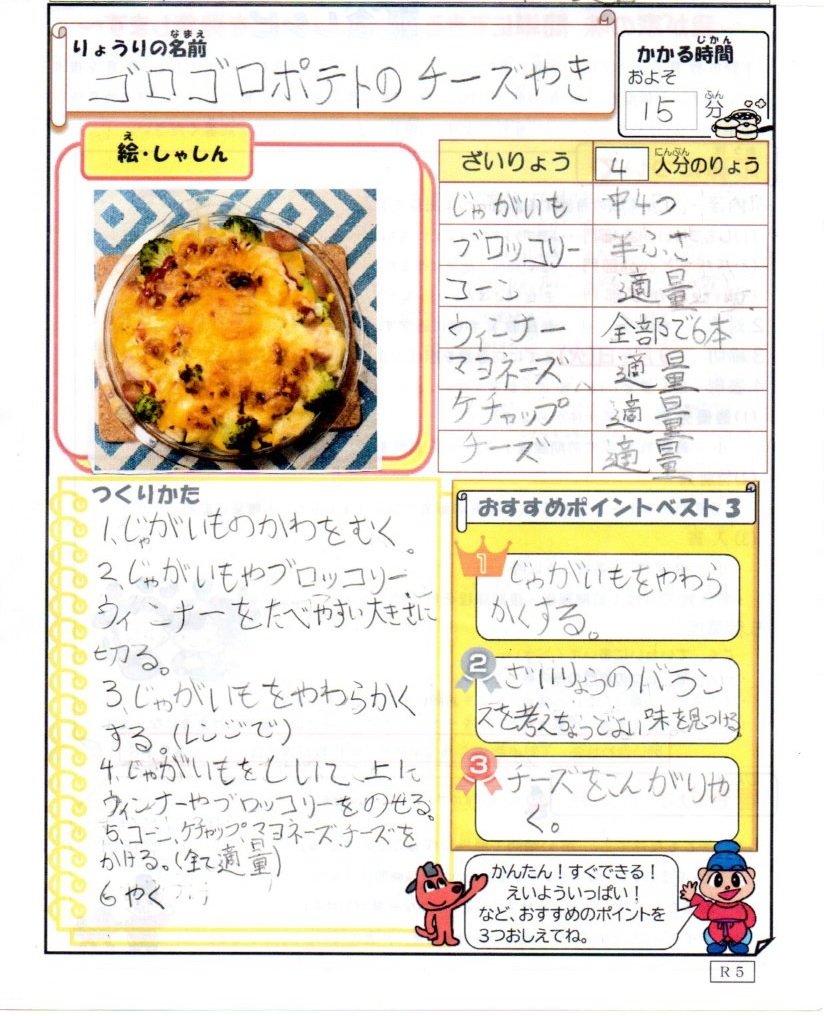 りょうりの名前
なまえ
ゴロゴロポテトのチーズやき
かかる時間
じかん
およそ
15分
ふん
絵・しゃしん
え
ざいりょう 4人分のりょう
にんぶん
じゃがいも 中4つ
ブロッコリー 半ふさ
コーン 適量
ウィーナー 全部で6本
マヨネーズ 適量
ケチャップ 適量
チーズ 適量
つくりかた
1、じゃがいものかわをむく。
2、じゃがいもやブロッコリー、
ウィンナーをたべやすい大きさに
切る。
3、じゃがいもをやわらかく
する。(レンジで)
4、じゃがいもをしいて、上に
ウィンナーやブロッコリーをのせる。
5、コーン、ケチャップ、マヨネーズ、チーズを
かける。(全て適量)
6 やく
おすすめポイントベスト3
1
じゃがいもをやわら
かくする。
2
ざいりょうのバラン
スを考えちょうどよい味を見つける。
3
チーズをこんがりや
く。
かんたん!すぐできる!
えいよういっぱい!
など、おすすめのポイントを
3つおしえてね。
R5